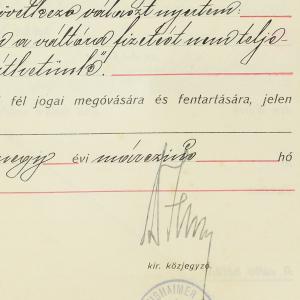 övetkező választ nyertem:
a a váltóra fizetést nem telje-
íthetünk".
fél jogai megóvására és fentartására, jelen
negy évi márczius hó
kir. közjegyző.
SHAIMER